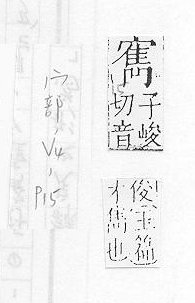 寯
子峻
切音
俊玉篇
才雋也
宀部, V4, P15